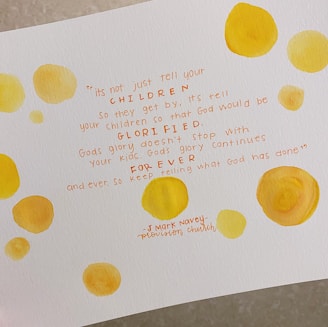 "its not just tell your
CHILDREN
so they get by, it's tell
your children so that God would be
GLORIFIED.
Gods glory doesn't stop with
your kids, Gods glory continues
FOREVER
and ever so keep telling what God has done"
-J Mark Navey-
-provision church-